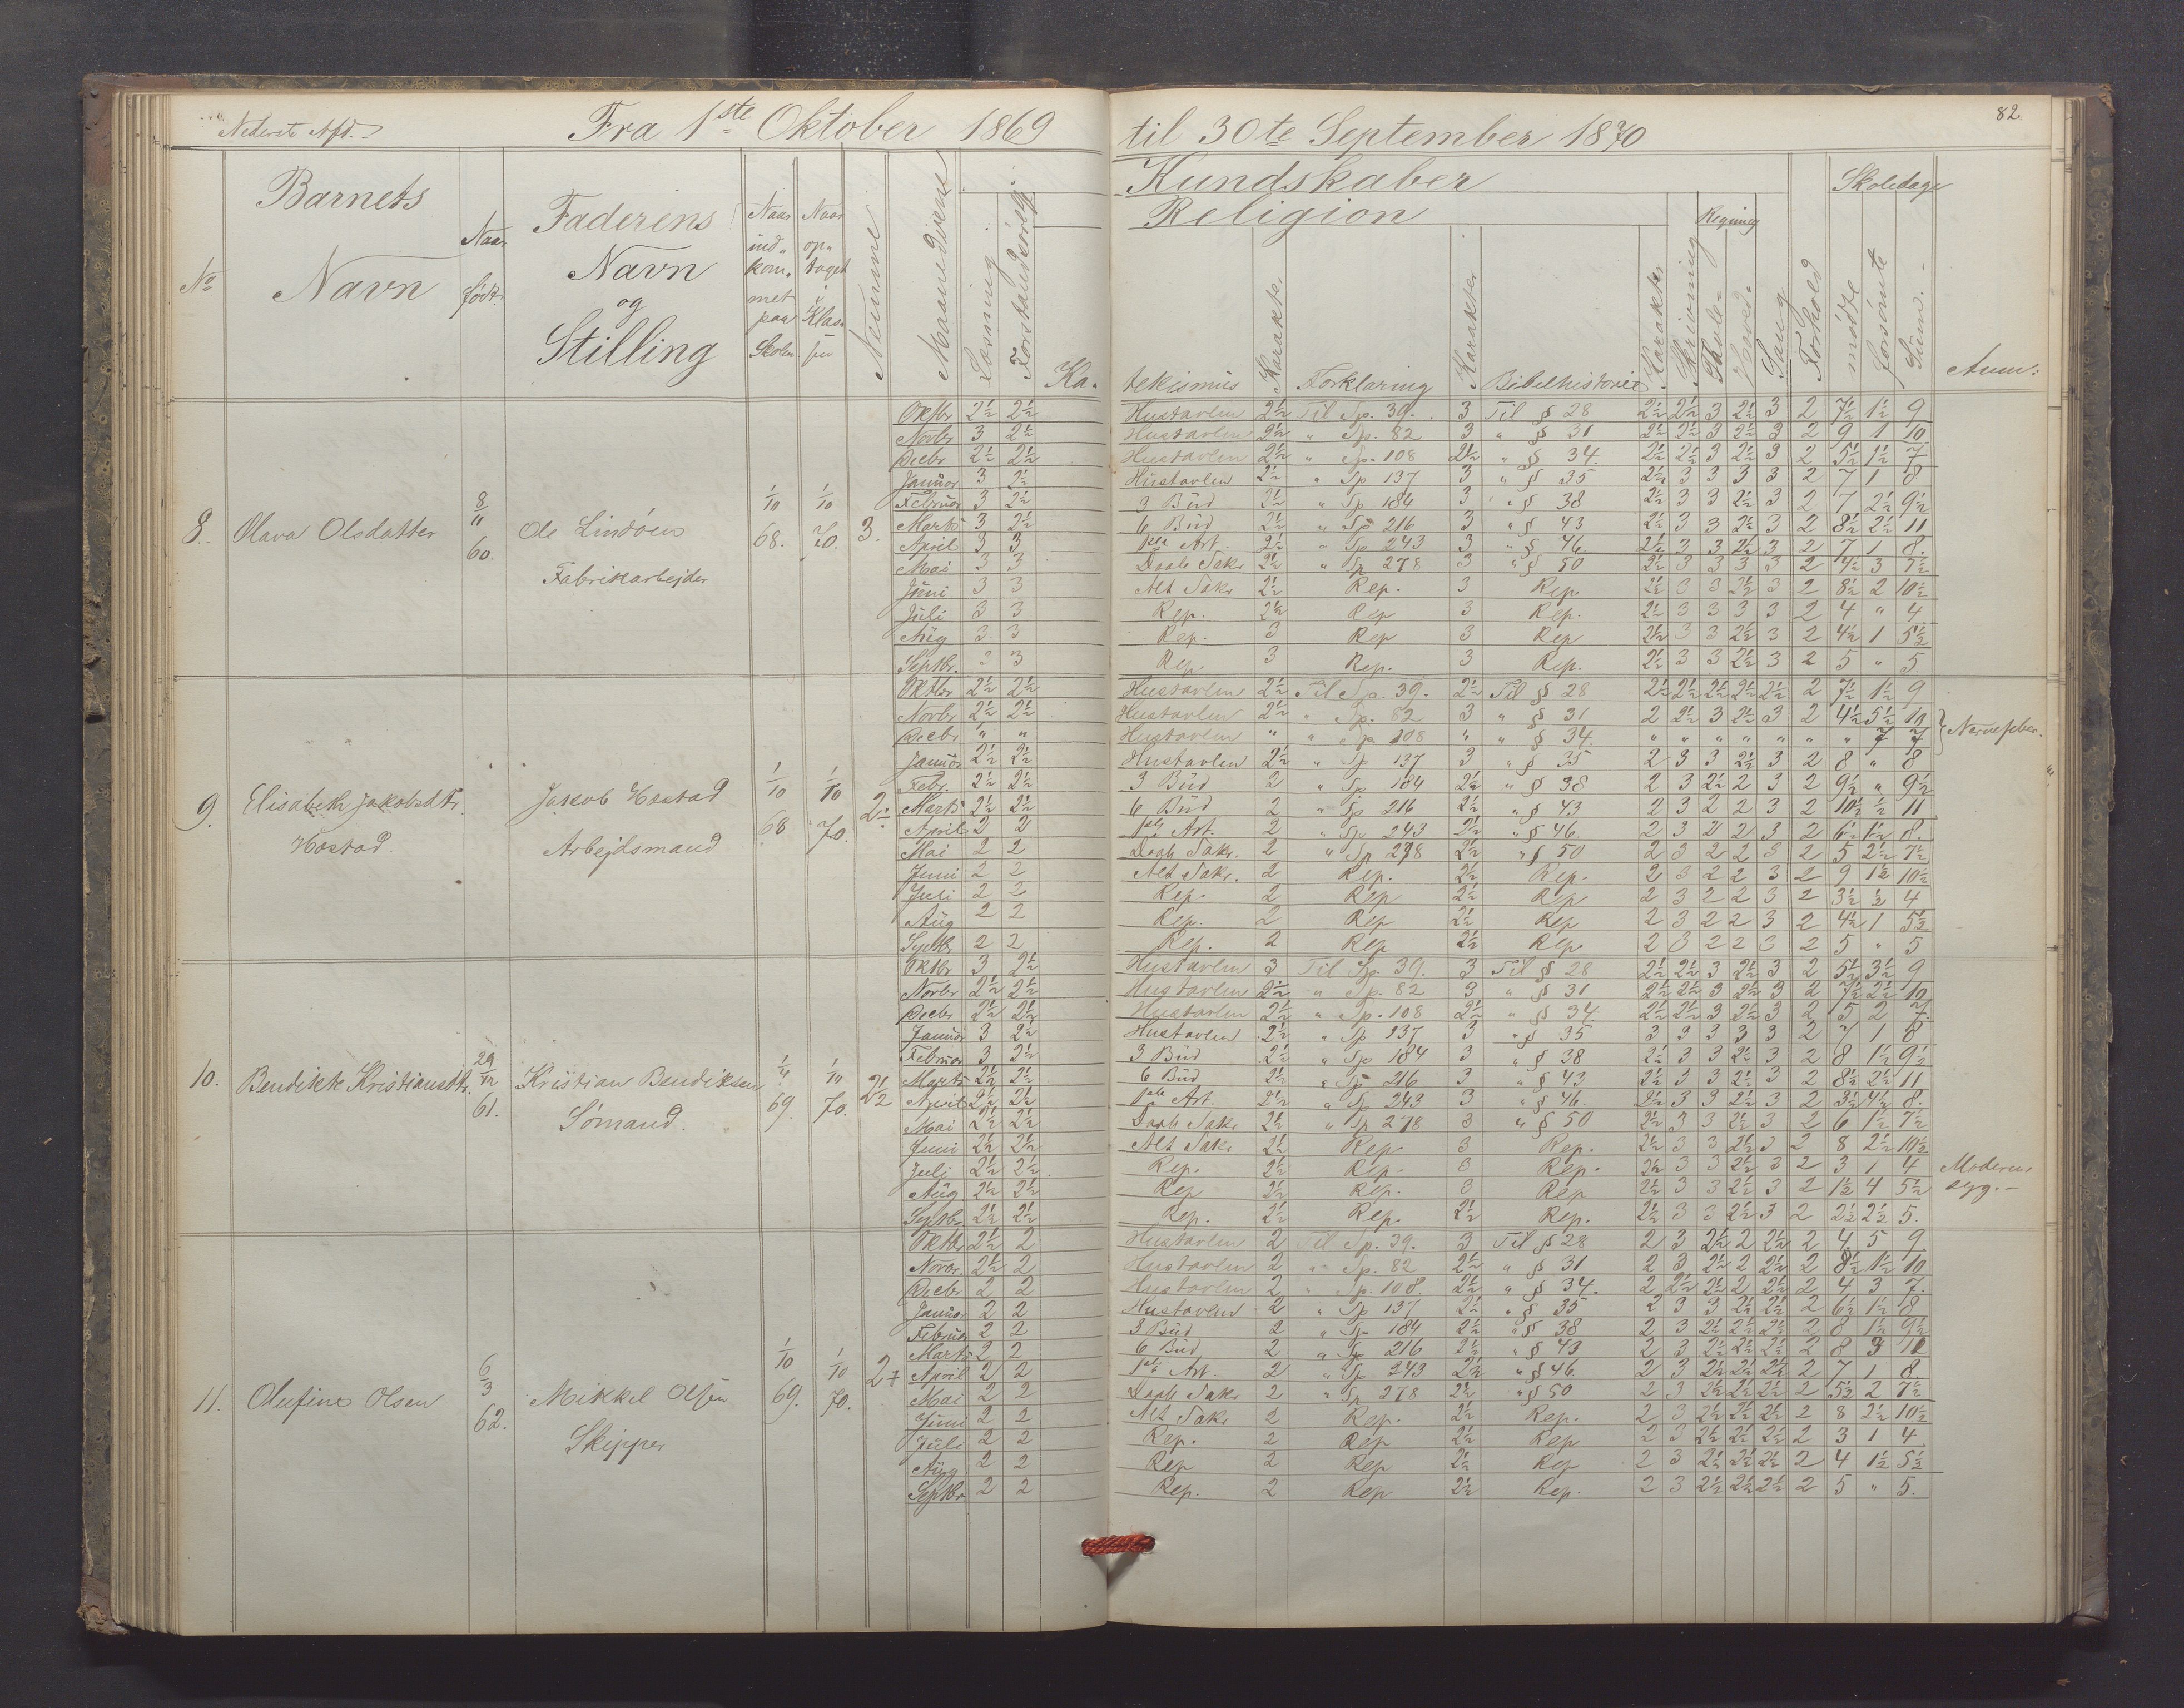 Nederste Afd.
Fra 1ste Oktober 1869
til 30te September 1870
82.
No
Barnets Navn
Naar født.
Faderens Navn og Stilling
Naar indkommet paa Skolen
Naar optaget i Klassen
Nemme
Maanedsvense
Læsning
Forstandsøvelse
Kundskaber
Religion
Ka-
tekismus
Karakter
Forklaring
Karakter
Bibelhistorie
Karakter
Skrivning
Regning
Tavle-
Hoved-
Sang
Forhold
Skoledage
mødte
forsømte
Sum.
Anm:
8. Olava Olsdatter 8/11 60. Ole Lindøen Fabrikarbejder 1/10 68. 1/10 70. 3.
Oktbr 2½ 2½ Hustavlen 2½ Til Sp. 39. 3 Til § 28 2½ 2½ 3 2½ 3 2 7½ 1½ 9
Novbr 3 2½ Hustavlen 2½ " Sp. 82 3 " § 31 2½ 2½ 3 2½ 3 2 9 1 10
Decbr 2½ 2½ Hustavlen 2½ " Sp. 108 2½ " § 34. 2½ 2½ 3 2½ 3 2 5½ 1½ 7
Januar 3 2½ Hustavlen 2½ " Sp 137 3 " § 35 2½ 3 3 3 3 2 7 1 8
Februar 3 2½ 3 Bud 2½ " Sp 184 3 " § 38 2½ 3 3 2½ 3 2 7 2½ 9½
Marts 3 2½ 6 Bud 2½ " Sp 216 3 " § 43 2½ 3 3 2½ 3 2 8½ 2½ 11
April 3 3 1ste Art. 2½ " Sp 243 3 " § 46 2½ 3 3 2½ 3 2 7 1 8.
Mai 3 3 Daab Sakr 2½ " Sp 278 3 " § 50 2½ 3 3 3 3 2 4½ 3 7½
Juni 3 3 Alt Sakr 2½ Rep. 3 Rep. 2½ 3 3 2½ 3 2 8½ 2 10½
Juli 3 3 Rep. 2½ Rep 3 Rep. 2½ 3 3 3 3 2 4 " 4
Aug 3 3 Rep. 3 Rep 3 Rep 2½ 3 3 2½ 3 2 4½ 1 5½
Septbr. 3 3 Rep. 3 Rep. 3 Rep. 2½ 3 3 2½ 3 2 5 " 5
9. Elisabeth Jakobsdtr. Høstad. Jakob Høstad Arbejdsmand 1/10 68 1/10 70. 2½
Oktbr 2½ 2½ Hustavlen 2½ Til Sp. 39. 2½ Til § 28 2½ 2½ 2½ 2½ 2½ 2 7½ 1½ 9
Novbr 2½ 2½ Hustavlen 2½ " Sp. 82 3 " § 31 2 2½ 3 2½ 3 2 4½ 5½ 10
Decbr " " Hustavlen " " Sp 108 " " § 34. " " " " " " " 7 7 Nervefeber.
Januar 2½ 2½ Hustavlen 2½ " Sp 137 3 " § 35 2 3 3 2½ 3 2 8 " 8
Febr. 2½ 2½ 3 Bud 2 " Sp 184 2½ " § 38 2 3 2½ 2 3 2 9½ " 9½
Marts 2½ 2½ 6 Bud 2 " Sp 216 2½ " § 43 2 3 2 2 3 2 10½ ½ 11
April 2 2 1ste Art. 2 " Sp 243 2½ " § 46. 2 3 2 2 3 2 6½ 1½ 8.
Mai 2 2 Daab Sakr. 2 " Sp 278 2½ " § 50 2 3 2 2 3 2 5 2½ 7½
Juni 2 2 Alt Sakr. 2 Rep. 2½ Rep. 2 3 2 2 3 2 9 1½ 10½
Juli 2 2 Rep. 2 Rep 2½ Rep 2 3 2 2 3 2 3½ ½ 4
Aug 2 2 Rep. 2 Rep 2½ Rep 2 3 2 2 3 2 4½ 1 5½
Septbr 2 2 Rep. 2 Rep 2½ Rep 2 3 2 2 3 2 5 " 5
10. Bendikte Kristiansdtr. 29/12 61. Kristian Bendiksen Sømand. 1/4 69. 1/10 70. 2½
Oktbr 3 2½ Hustavlen 3 Til Sp 39. 3 Til § 28 2½ 2½ 3 2½ 3 2 5½ 3½ 9
Novbr 2½ 2½ Hustavlen 2½ " Sp. 82 3 " § 31 2½ 2½ 3 2½ 3 2 7½ 2½ 10
Decbr 2½ 2½ Hustavlen 2½ " Sp. 108 2½ " § 34. 2½ 2½ 3 2½ 3 2 5 2 7.
Januar 3 2½ Hustavlen 2½ " Sp 137 3 " § 35 3 3 3 3 3 2 7 1 8
Februar 3 2½ 3 Bud 2½ " Sp 184 3 " § 38 2½ 3 3 2½ 3 2 8 1½ 9½
Marts 2½ 2½ 6 Bud 2½ " Sp 216 3 " § 43 2½ 3 3 2½ 3 2 8½ 2½ 11
April 2½ 2½ 1ste Art. 2½ " Sp 243 3 " § 46. 2½ 3 3 2½ 3 2 3½ 4½ 8.
Mai 2½ 2½ Daab Sakr 2½ " Sp 278 3 " § 50 2½ 3 3 2½ 3 2 6 1½ 7½
Juni 2½ 2½ Alt Sakr 2½ Rep 3 Rep. 2½ 3 3 2½ 3 2 8 2½ 10½
Juli 2½ 2½ Rep. 2½ Rep. 3 Rep. 2½ 3 3 2½ 3 2 3 1 4 Moderen
Aug 2½ 2½ Rep 2½ Rep. 3 Rep 2½ 3 3 2½ 3 2 1½ 4 5½ syg.-
Septbr 2½ 2½ Rep. 2½ Rep. 2½ Rep. 2½ 3 3 2½ 3 2 2½ 2½ 5.
11. Olufine Olsen 6/3 62. Mikkel Olsen Skipper 1/10 69. 1/10 70. 2
Oktbr 2½ 2 Hustavlen 2 Til Sp. 39. 3 Til § 28 2 3 2½ 2 2½ 2 4 5 9
Novbr. 2½ 2 Hustavlen 2 " Sp. 82 2½ " § 31 2 3 2½ 2 2½ 2 8½ 1½ 10
Decbr 2 2 Hustavlen 2 " Sp. 108. 2½ " § 34. 2 2½ 2½ 2 2½ 2 4 3 7.
Januar 2 2 Hustavlen 2 " Sp 137 2½ " § 35 2 3 3 2½ 2½ 2 6½ 1½ 8
Februar 2 2 3 Bud 2 " Sp 184 2½ " § 38 2 3 2½ 2½ 2½ 2 8 1½ 9½
Marts 2 2 6 Bud 2 " Sp 216 2½ " § 43 2 3 2½ 2½ 2½ 2 8 3 11
April 2 2 1ste Art. 2 " Sp 243 2½ " § 46 2 3 2½ 2½ 2½ 2 7 1 8.
Mai 2 2 Daab Sakr 2 " Sp 278 2½ " § 50 2 3 2½ 2½ 2½ 2 5½ 2 7½
Juni 2 2 Alt Sakr 2 Rep. 2½ Rep. 2 3 2½ 2½ 2½ 2 8 2½ 10½
Juli 2 2 Rep. 2 Rep 2½ Rep 2 3 2½ 2½ 2½ 2 3 1 4
Aug 2 2 Rep 2 Rep 2½ Rep 2 3 2½ 2½ 2½ 2 4 1½ 5½
Septbr 2 2 Rep. 2 Rep 2½ Rep. 2 3 2½ 2½ 2½ 2 5 " 5.